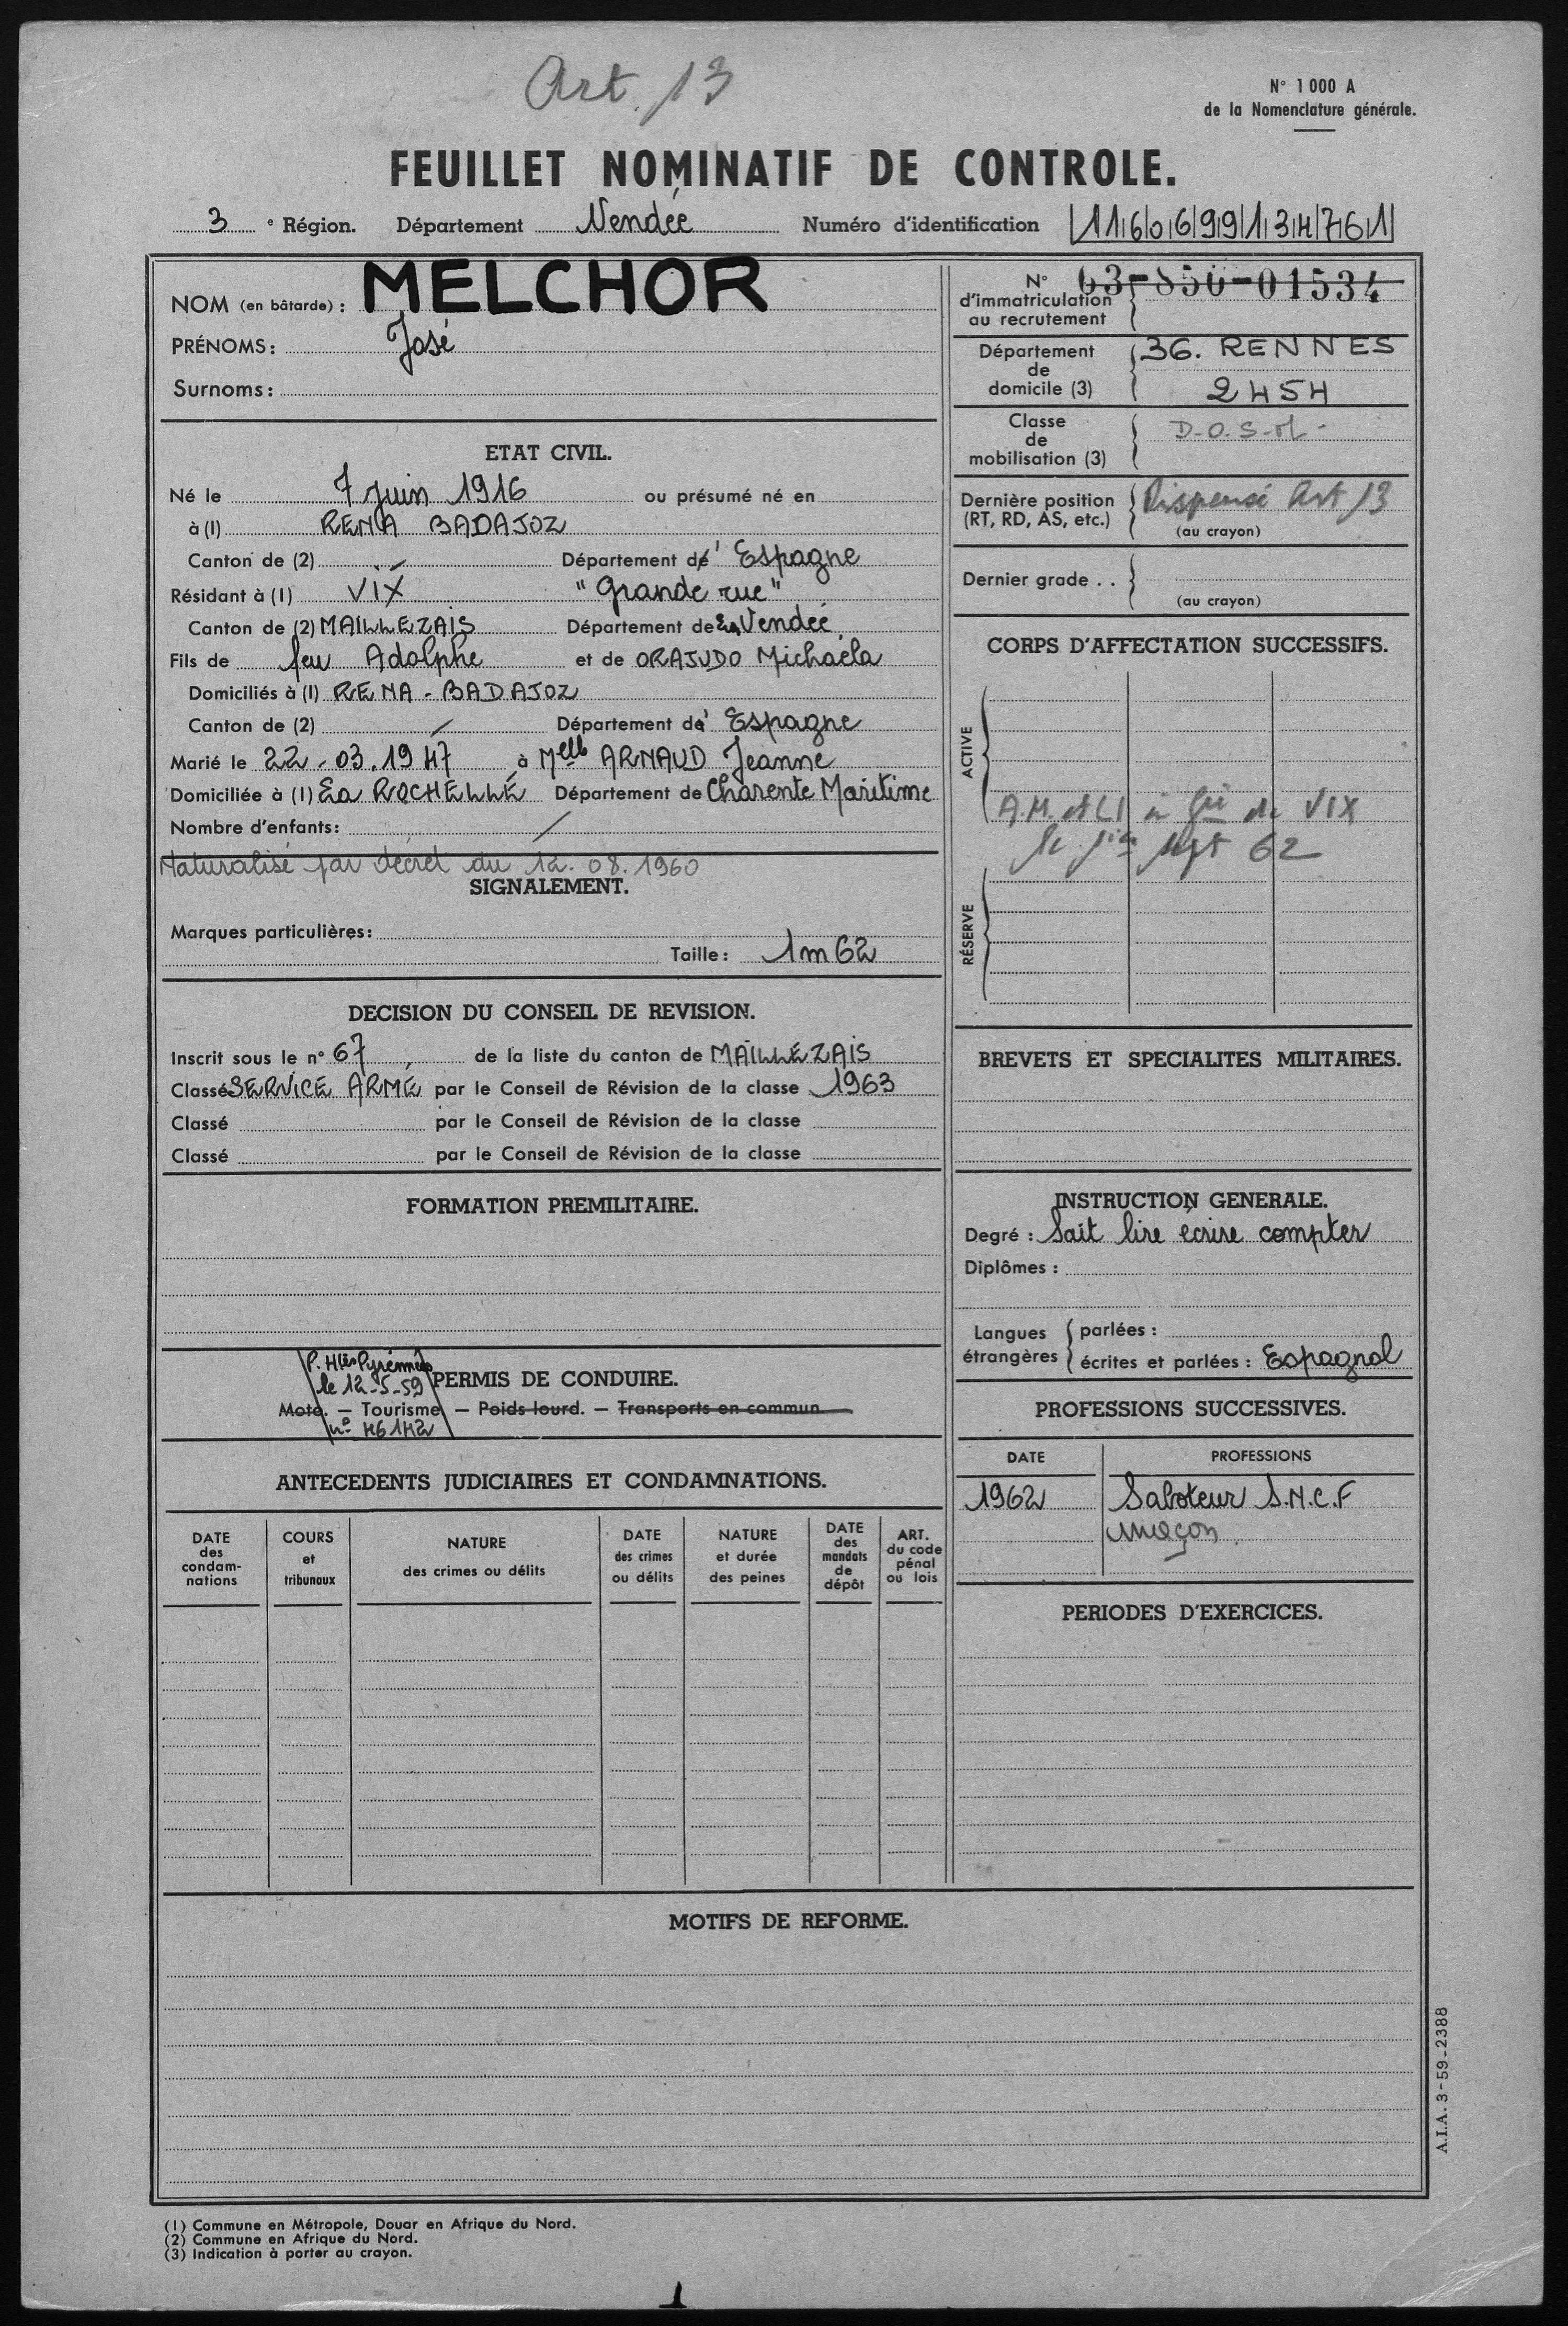 Art. 13
N° 1 000 A
de la Nomenclature générale.
FEUILLET NOMINATIF DE CONTROLE.
3 e Région. Département Vendée Numéro d'identification 1160699134761
NOM (en bâtarde) : MELCHOR
PRÉNOMS : José
Surnoms :
ETAT CIVIL.
Né le 7 Juin 1916 ou présumé né en
à (1) RENA BADAJOZ
Canton de (2) Département d' Espagne
Résidant à (1) VIX "Grande rue"
Canton de (2) MAILLEZAIS Département de la Vendée
Fils de feu Adolphe et de ORAJUDO Michaela
Domiciliés à (1) RENA - BADAJOZ
Canton de (2) Département d' Espagne
Marié le 22-03.1947 à Melle ARNAUD Jeanne
Domiciliée à (1) La ROCHELLE Département de Charente Maritime
Nombre d'enfants :
Naturalisé par décret du 12.08.1960
SIGNALEMENT.
Marques particulières :
Taille : 1m62
DECISION DU CONSEIL DE REVISION.
Inscrit sous le n° 67 de la liste du canton de MAILLEZAIS
Classé SERVICE ARMÉ par le Conseil de Révision de la classe 1963
Classé par le Conseil de Révision de la classe
Classé par le Conseil de Révision de la classe
FORMATION PREMILITAIRE.
P. Htes Pyrénnées
le 12-5-59
PERMIS DE CONDUIRE.
Moto. — Tourisme — Poids lourd. — Transports en commun
n° 46142
ANTECEDENTS JUDICIAIRES ET CONDAMNATIONS.
DATE des condam-nations
COURS et tribunaux
NATURE des crimes ou délits
DATE des crimes ou délits
NATURE et durée des peines
DATE des mandats de dépôt
ART. du code pénal ou lois
N° d'immatriculation au recrutement 63-850-01534
Département de domicile (3) 36. RENNES
2454
Classe de mobilisation (3)
Dernière position (RT, RD, AS, etc.) Dispensé Art 13
(au crayon)
Dernier grade . .
(au crayon)
CORPS D'AFFECTATION SUCCESSIFS.
ACTIVE
VIX
62
RÉSERVE
BREVETS ET SPECIALITES MILITAIRES.
INSTRUCTION GENERALE.
Degré : Sait lire écrire compter
Diplômes :
Langues étrangères
parlées :
écrites et parlées : Espagnol
PROFESSIONS SUCCESSIVES.
DATE PROFESSIONS
1962 Saboteur S.N.C.F
maçon
PERIODES D'EXERCICES.
MOTIFS DE REFORME.
A.I.A. 3-59-2388
(1) Commune en Métropole, Douar en Afrique du Nord.
(2) Commune en Afrique du Nord.
(3) Indication à porter au crayon.
1